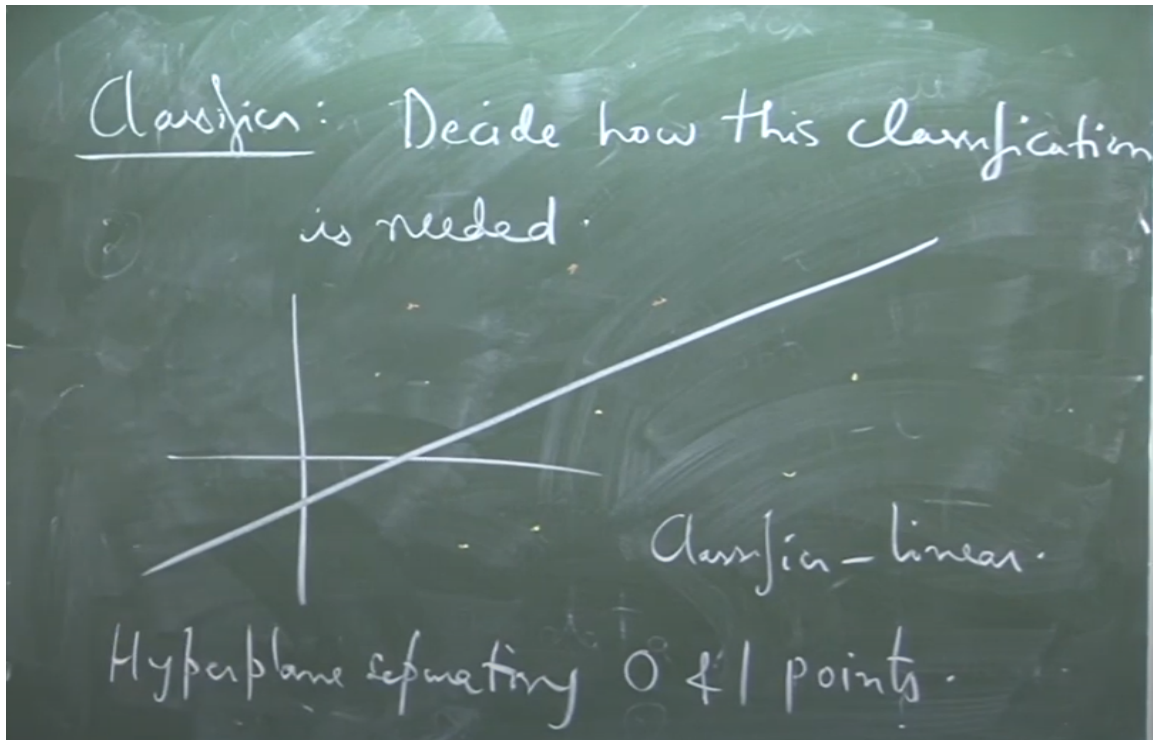 Classifier: Decide how this classification
is needed.
Classifier - linear.
Hyperplane separating 0 & 1 points.